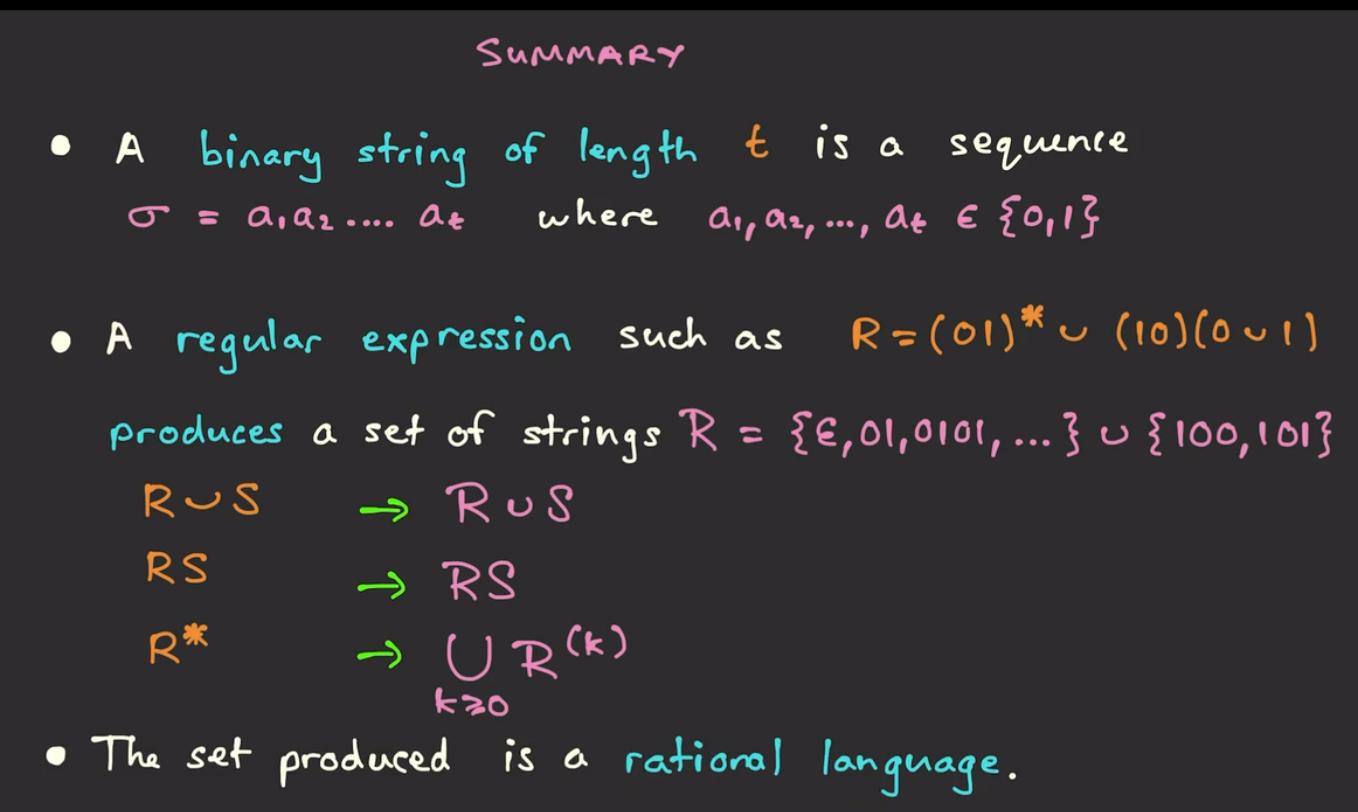 SUMMARY
• A binary string of length t is a sequence
σ = a₁a₂.... aₜ where a₁, a₂, ..., aₜ ∈ {0,1}
• A regular expression such as R = (01)* ⌣ (10)(0 ⌣ 1)
produces a set of strings ℛ = {ε, 01, 0101, ...} ∪ {100, 101}
R ⌣ S → ℛ ∪ 𝒮
RS → ℛ𝒮
R* → ⋃ ℛ⁽ᵏ⁾
k≥0
• The set produced is a rational language.